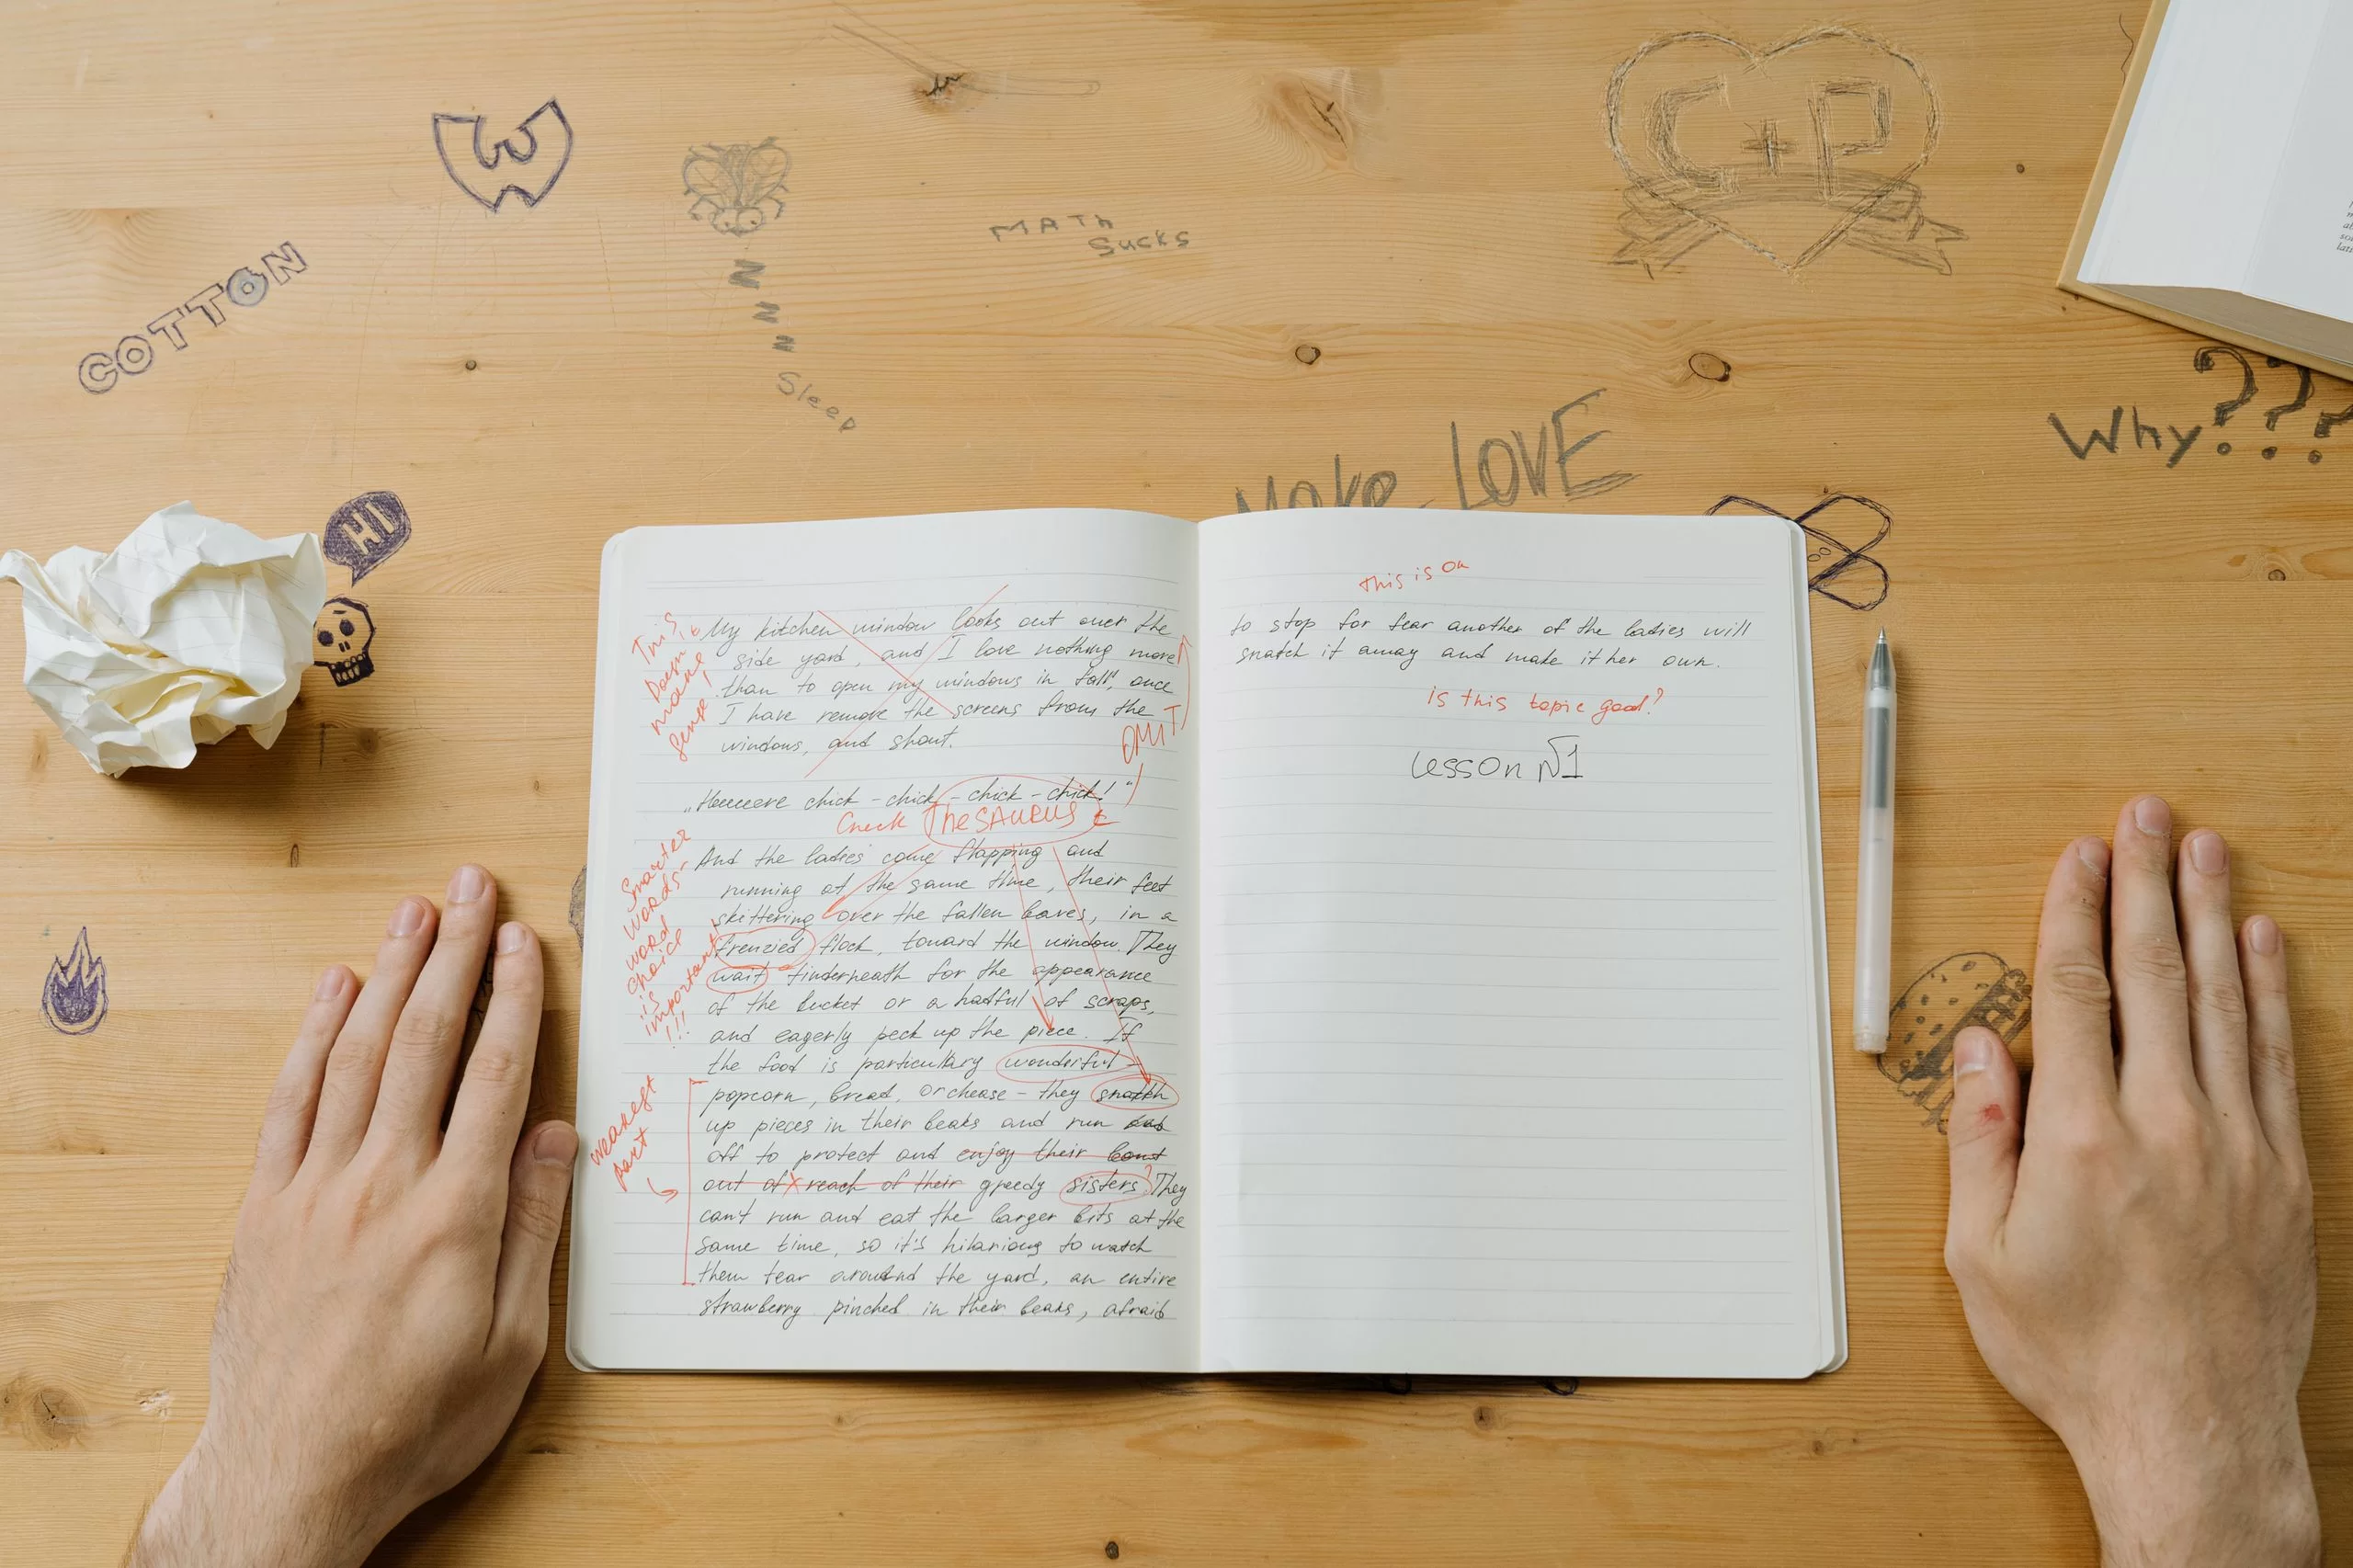 W
C+P
MATh
Sucks
COTTON
N
N
N
Sleep
Why???
Make LOVE
HI
This
Doesn't
make
sense!
My kitchen window looks out over the
side yard, and I love nothing more
than to open my windows in fall, once
I have remove the screens from the
windows, and shout.
OMIT
„Heeeere chick - chick - chick - chick! "
Check TheSAURUS
Smarter
words-
word
choice
is
important
!!!
And the ladies come flapping and
running at the same time, their feet
skittering over the fallen leaves, in a
frenzied flock, toward the window. They
wait underneath for the appearance
of the bucket or a hatful of scraps,
and eagerly peck up the piece. If
the food is particullary wonderful -
popcorn, bread, or chease - they snatch
up pieces in their beaks and run
off to protect and enjoy their
out of reach of their greedy sisters? They
can't run and eat the larger bits at the
same time, so it's hilarious to watch
them tear around the yard, an entire
strawberry pinched in their beaks, afraid
weakest
part
This is Ok
to stop for fear another of the ladies will
snatch it away and make it her own.
is this topic good?
Lesson №1